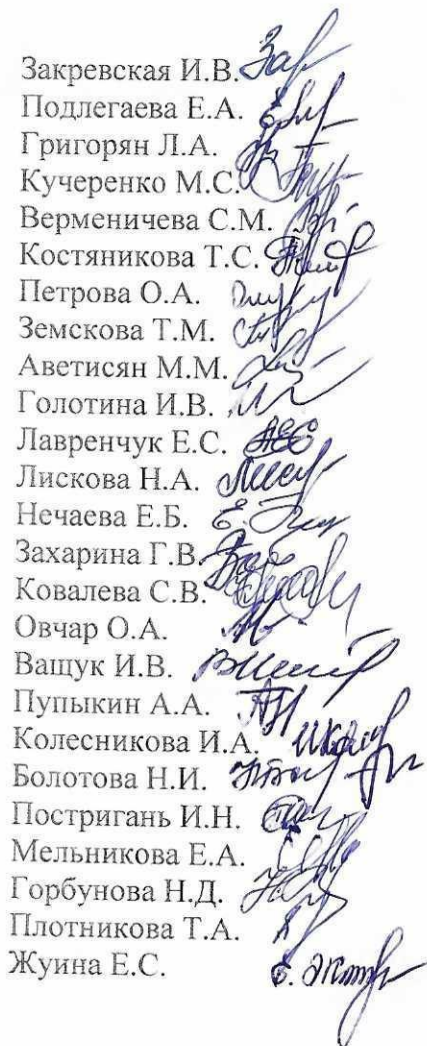 Закревская И.В.
Подлегаева Е.А.
Григорян Л.А.
Кучеренко М.С.
Верменичева С.М.
Костяникова Т.С.
Петрова О.А.
Земскова Т.М.
Аветисян М.М.
Голотина И.В.
Лавренчук Е.С.
Лискова Н.А.
Нечаева Е.Б.
Захарина Г.В.
Ковалева С.В.
Овчар О.А.
Ващук И.В.
Пупыкин А.А.
Колесникова И.А.
Болотова Н.И.
Постригань И.Н.
Мельникова Е.А.
Горбунова Н.Д.
Плотникова Т.А.
Жуина Е.С.